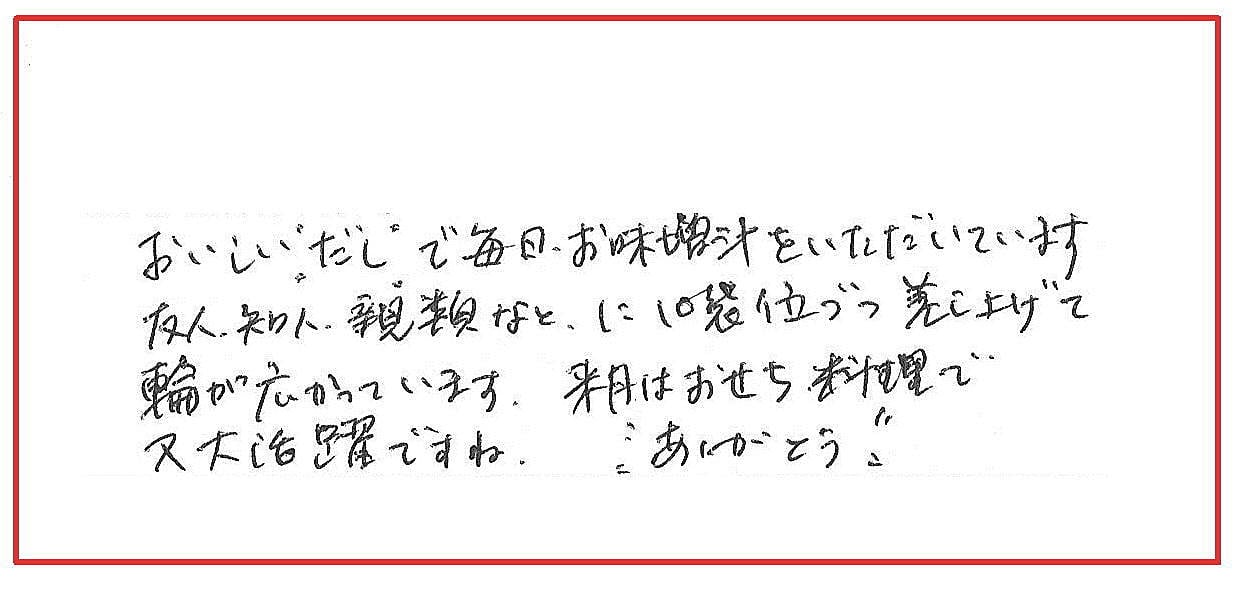 おいしい"だし"で毎日、お味増汁をいただいています
友人、知人、親類などに10袋位づつ差し上げて
輪が広がっています。来月はおせち料理で
又大活躍ですね。"ありがとう"